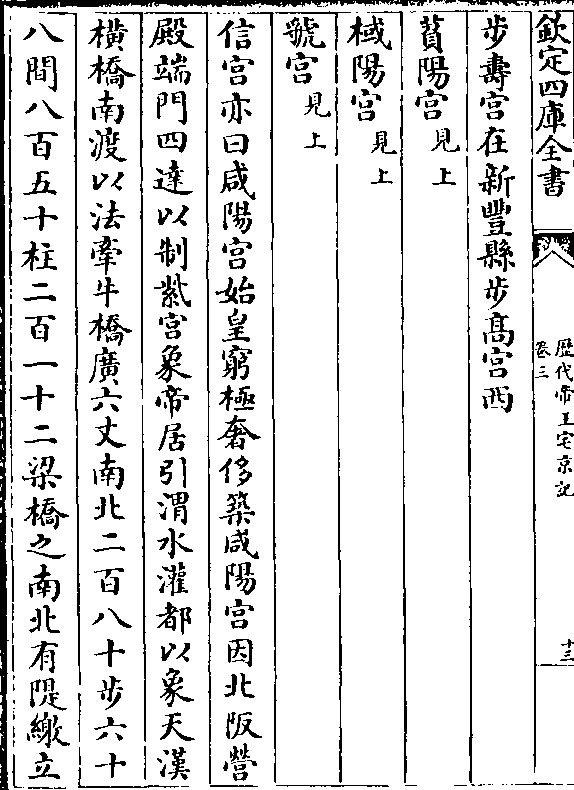 欽定四庫全書
歷代帝王宅京記
卷三
十三
步壽宫在新豐縣步髙宫西
萯陽宫見上
棫陽宫見上
虢宫見上
信宫亦曰咸陽宫始皇窮極奢侈築咸陽宫因北阪營
殿端門四達以制紫宫象帝居引渭水灌都以象天漢
橫橋南渡以法牽牛橋廣六丈南北二百八十步六十
八間八百五十柱二百一十二梁橋之南北有隄繳立